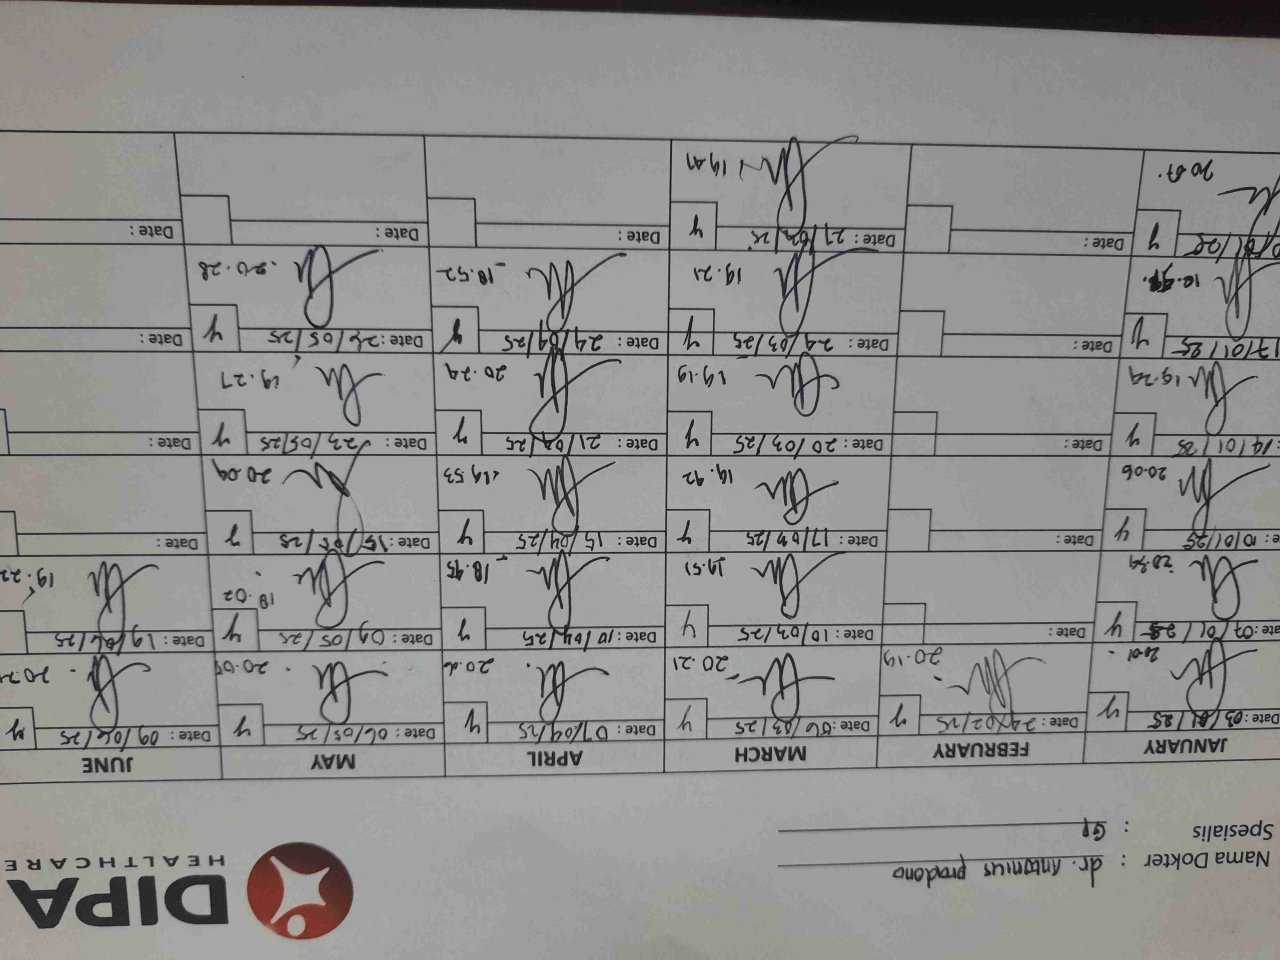 DIPA
HEALTHCARE
Nama Dokter : dr. Antonius pradono
Spesialis : GP
JANUARY FEBRUARY MARCH APRIL MAY JUNE
Date: 03/01/25 Date: 24/02/25 Date: 06/03/25 Date: 07/04/25 Date: 06/05/25 Date: 09/06/25
20.01 20.19 20.21 20.06 20.05
Date: 07/01/25 Date: Date: 10/03/25 Date: 10/04/25 Date: 09/05/25 Date: 19/06/25
20.34 19.51 18.45 18.02 19.22
Date: 10/01/25 Date: Date: 17/03/25 Date: 15/04/25 Date: 15/05/25 Date:
20.06 19.42 19.53 20.09
Date: 14/01/25 Date: Date: 20/03/25 Date: 21/04/25 Date: 23/05/25 Date:
19.24 19.19 20.24 19.27
17/01/25 Date: Date: 24/03/25 Date: 24/04/25 Date: 26/05/25 Date:
19.21 18.52 20.28
Date: Date: 27/03/25 Date: Date: Date:
20.07 19.47